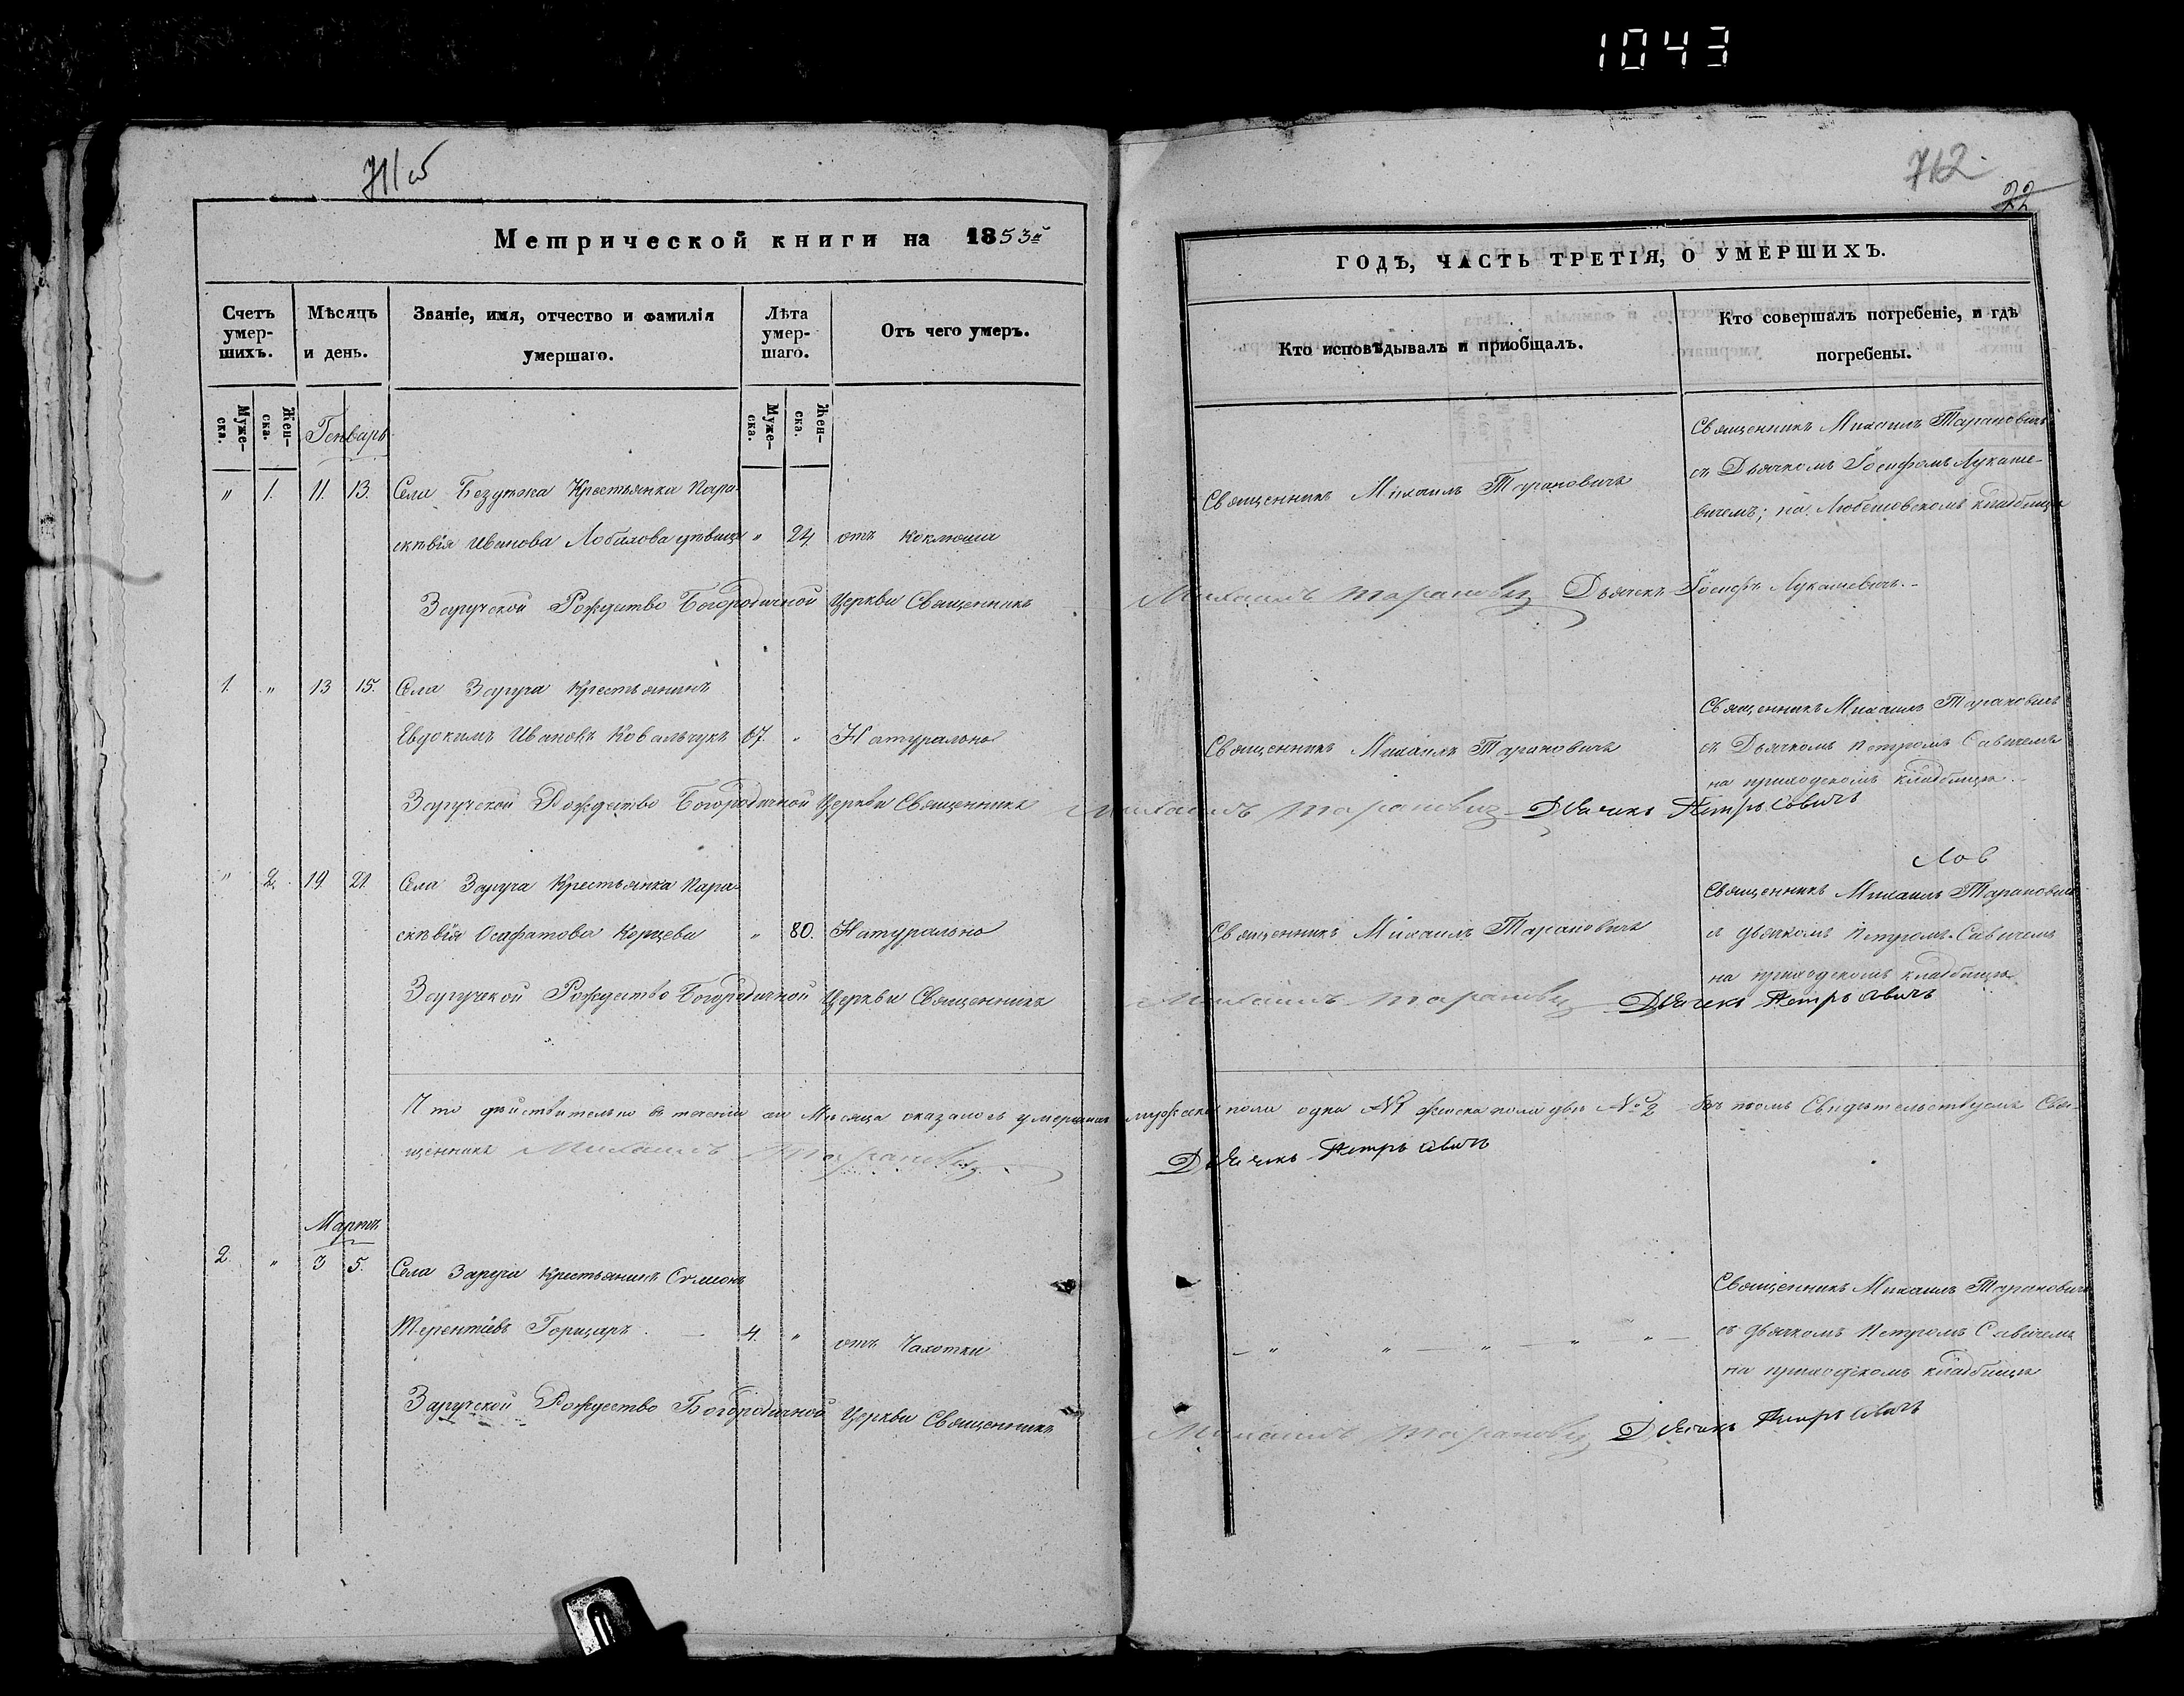 1043
711 об
712
22
Метрической книги на 1853й
Счетъ умершихъ.
Мѣсяцъ и день.
Званіе, имя, отчество и фамилія умершаго.
Лѣта умершаго.
Отъ чего умеръ.
Муже-ска.
Жен-ска.
Муже-ска.
Жен-ска.
Генварь
" 1. 11. 13. Села Крестьянка Пара-
скевія Иванова дѣвица " 24. отъ Коклюша
Заручской Рождество Богородичной Церкви Священникъ
1. " 13 15. Села Заруча Крестьянинъ
Евдокимъ Ивановъ Ковальчукъ 67. " Натурально
Заручской Рождество Богородичной Церкви Священникъ
" 2. 19. 21. Села Заруча Крестьянка Пара-
скевія Осафатова " 80. Натурально
Заручской Рождество Богородичной Церкви Священникъ
Что действительно въ теченіи Месяца оказалось умершихъ
щенникъ Михаилъ Тарановичъ
Мартъ
2. " 3 5. Села Заруча Крестьянинъ Сѵмеонъ
Терентіевъ Горщаръ 4. " отъ Чахотки
Заручской Рождество Богородичной Церкви Священникъ
ГОДЪ, ЧАСТЬ ТРЕТІЯ, О УМЕРШИХЪ.
Кто исповѣдывалъ и приобщалъ.
Кто совершалъ погребеніе, и гдѣ погребены.
Священникъ Михаилъ Тарановичъ
Священникъ Михаилъ Тарановичъ
съ Дьячкомъ Іосифомъ Лукаше-
вичемъ; на Любешовскомъ кладбищѣ
Михаилъ Тарановичъ Дьячекъ Іосифъ Лукашевичъ.
Священникъ Михаилъ Тарановичъ
Священникъ Михаилъ Тарановичъ
съ Дьячкомъ Петромъ Савичемъ
на приходскомъ кладбищѣ
Михаилъ Тарановичъ Дьячекъ Петръ Савичъ
Священникъ Михаилъ Тарановичъ
Священникъ Михаилъ Тарановичъ
съ дьячкомъ Петромъ Савичемъ
на приходскомъ кладбищѣ
Михаилъ Тарановичъ Дьячекъ Петръ Савичъ
мужеска пола одна №1 женска пола две №2 въ томъ Свидетельствуемъ Свя-
Дьячекъ Петръ Савичъ
Священникъ Михаилъ Тарановичъ
съ дьячкомъ Петромъ Савичемъ
на приходскомъ кладбищѣ
Михаилъ Тарановичъ Дьячекъ Петръ Савичъ